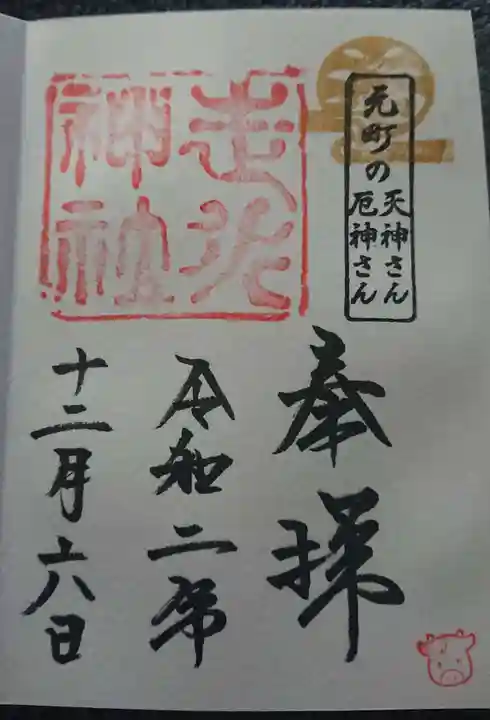 元町の
天神さん
厄神さん
走水
神社
奉拝
令和二年
十二月六日